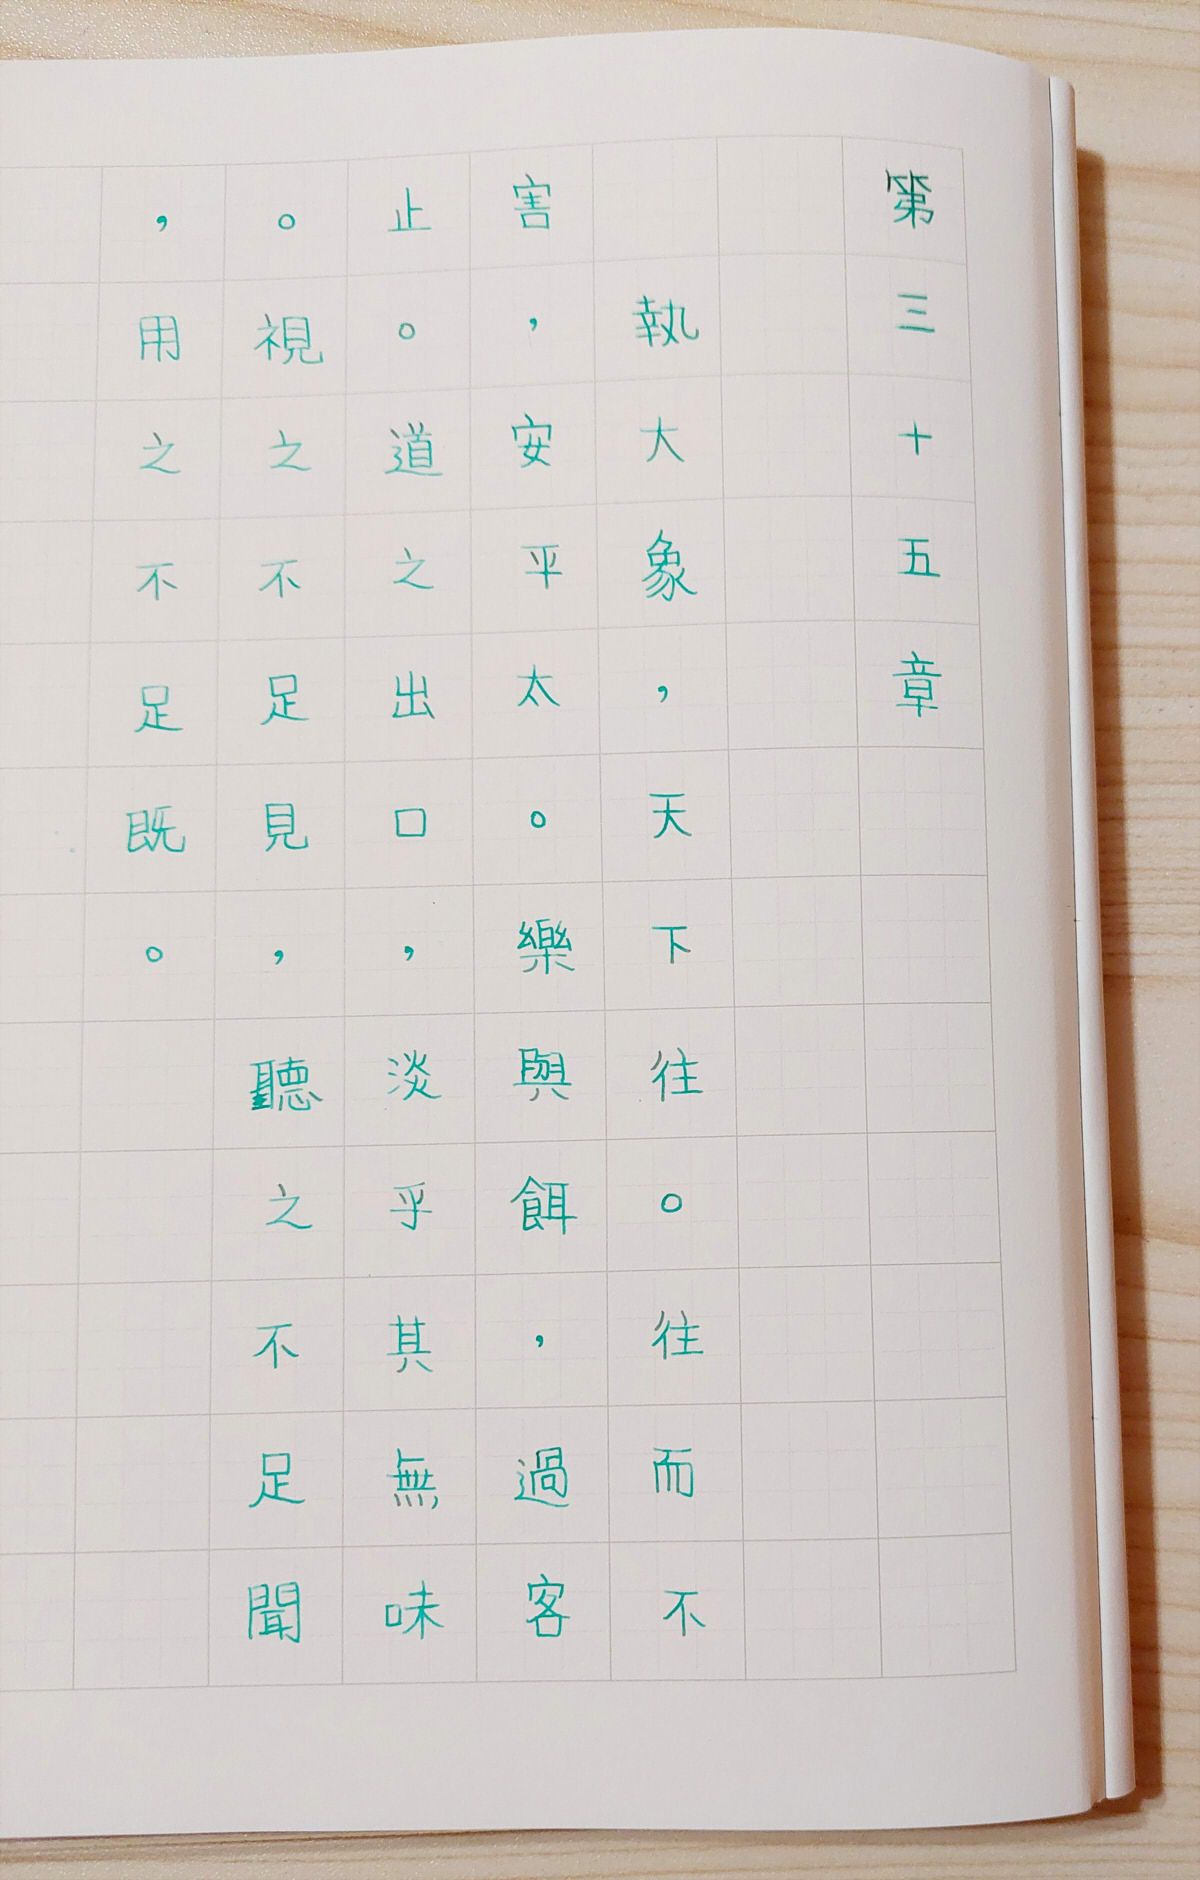 第三十五章
執大象，天下往。往而不
害，安平太。樂與餌，過客
止。道之出口，淡乎其無味
。視之不足見，聽之不足聞
，用之不足既。